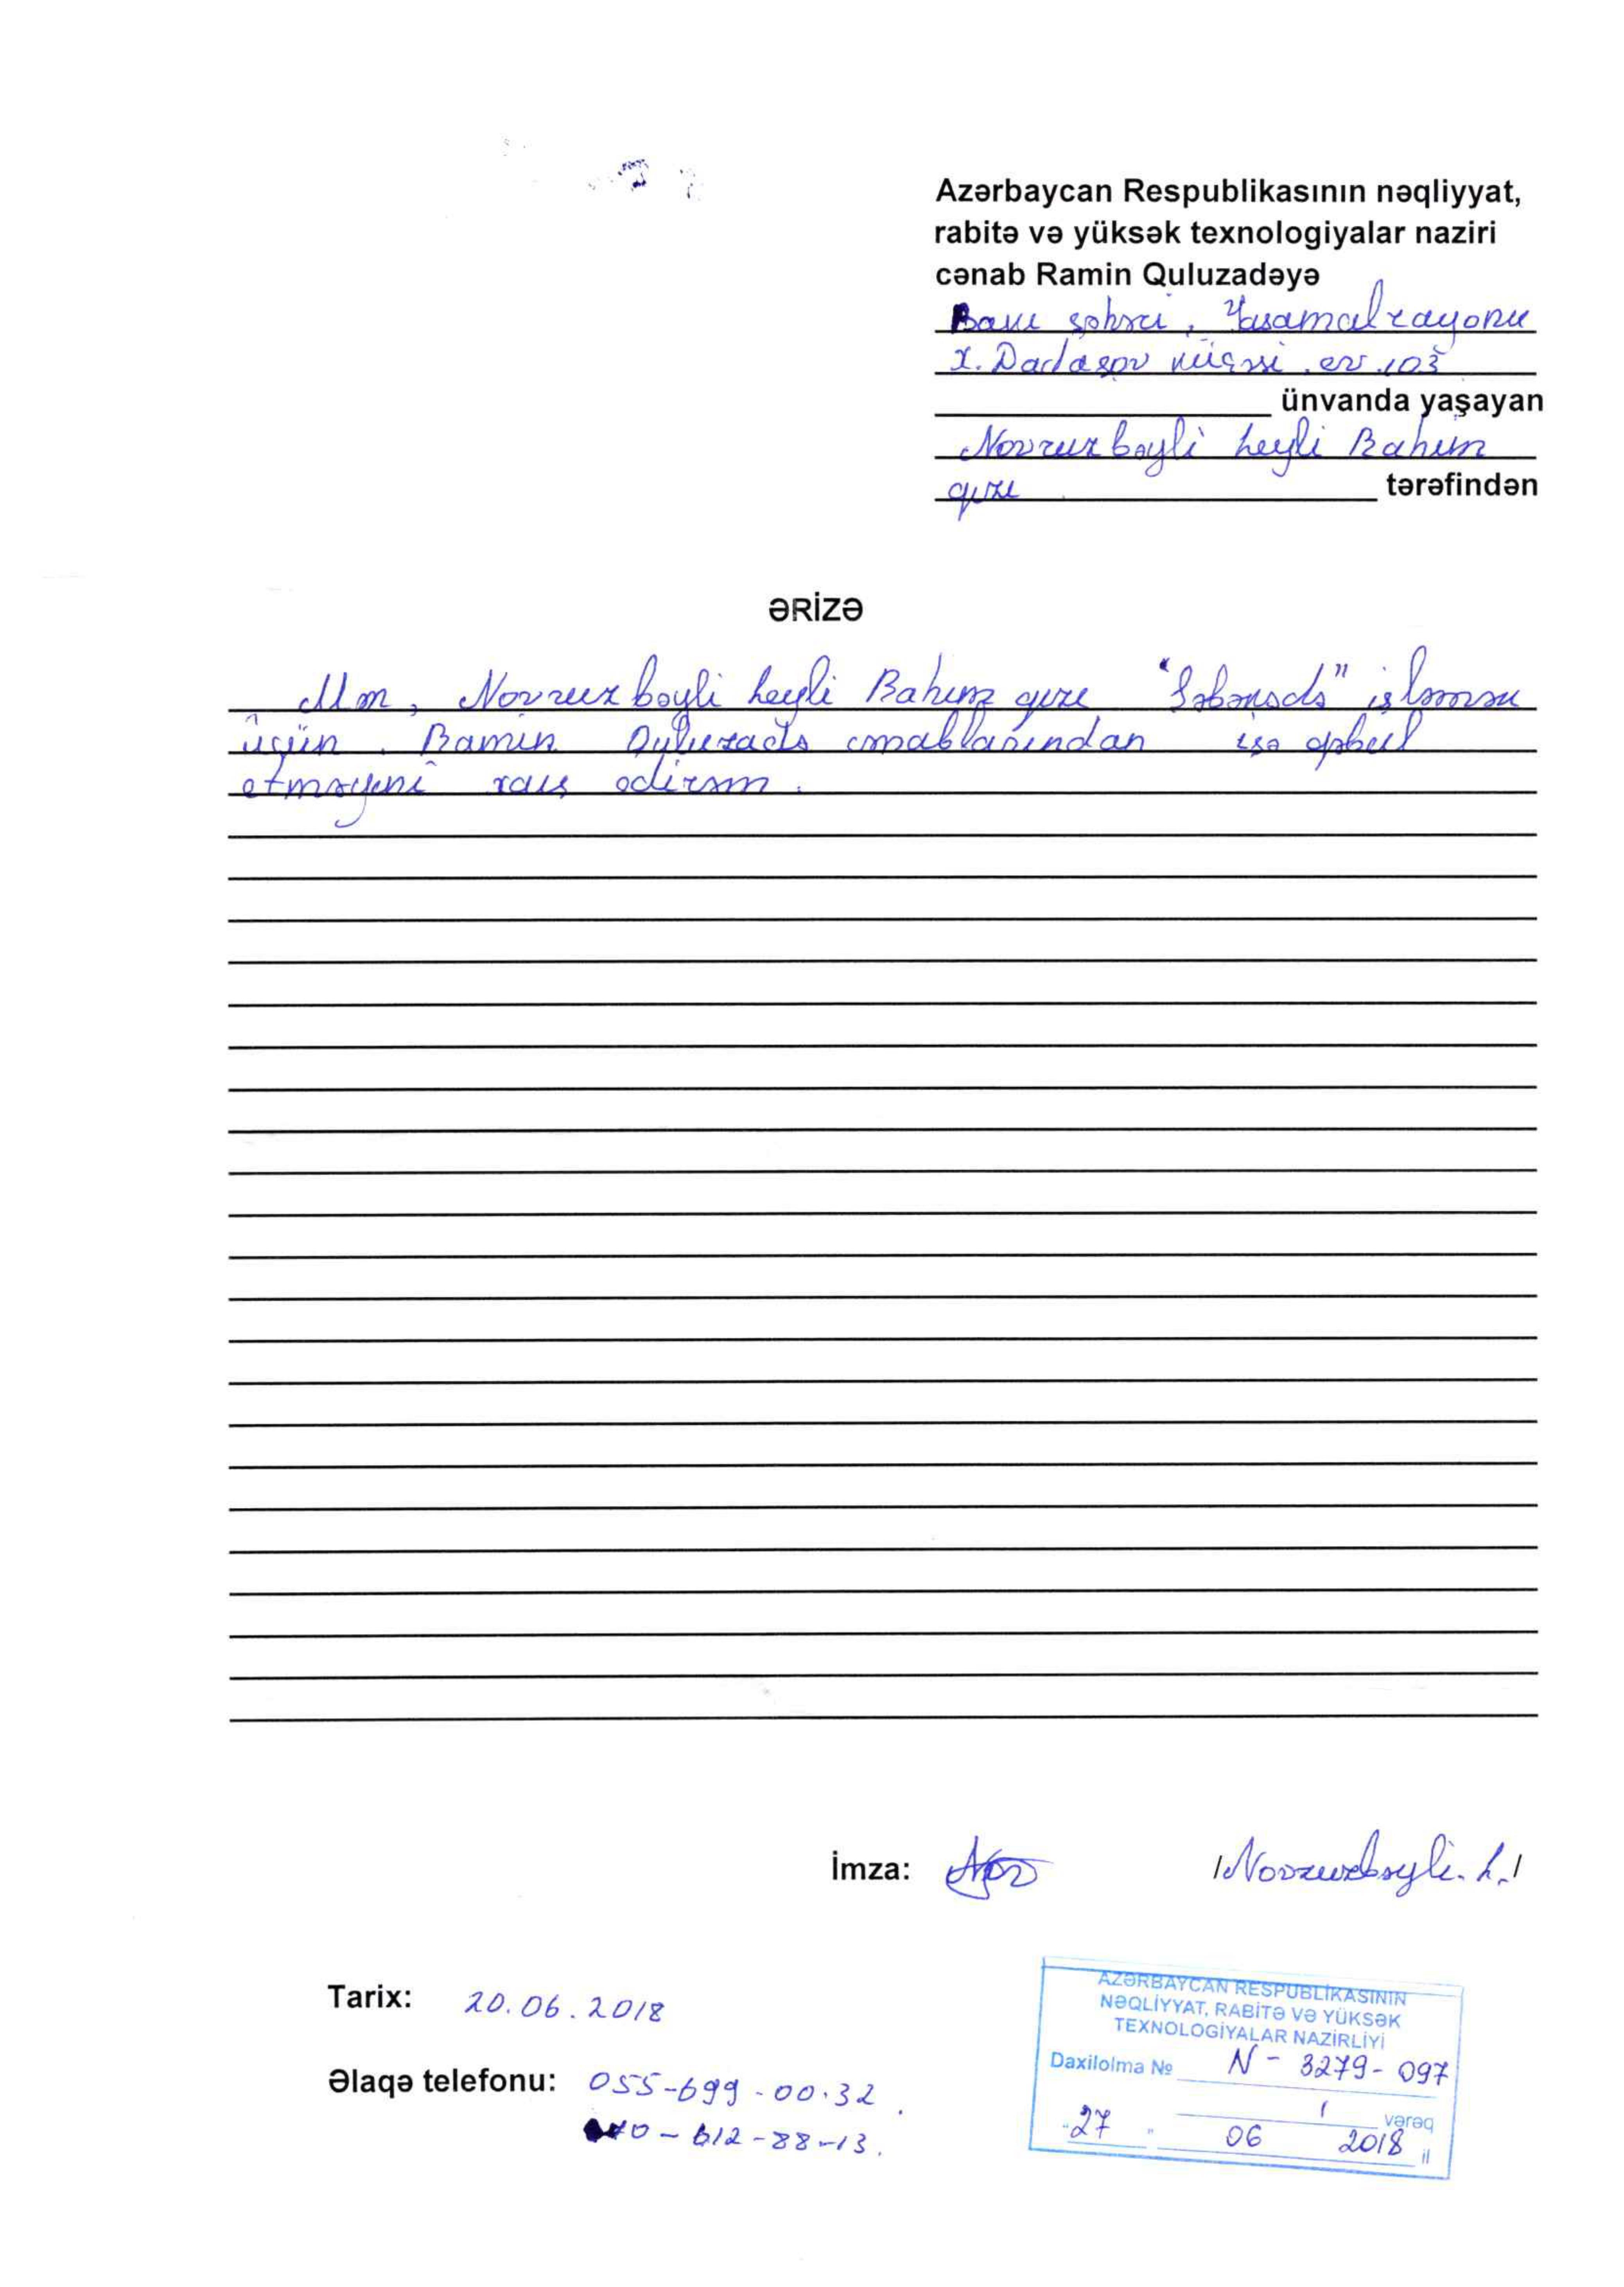 Azərbaycan Respublikasının nəqliyyat,
rabitə və yüksək texnologiyalar naziri
cənab Ramin Quluzadəyə
Bakı şəhəri, Yasamal rayonu
X. Dadaşov küçəsi, ev 103
ünvanda yaşayan
Novruzbəyli Leyli Rahim
qızı tərəfindən
ƏRİZƏ
Mən, Novruzbəyli Leyli Rahim qızı işləməm
üçün Ramin Quluzadə cənablarından işə qəbul
etməyini xaiş edirəm.
İmza: /Novruzbəyli. L./
Tarix: 20.06.2018
Əlaqə telefonu: 055-699-00-32
612-88-13.
AZƏRBAYCAN RESPUBLİKASININ
NƏQLİYYAT, RABİTƏ VƏ YÜKSƏK
TEXNOLOGİYALAR NAZİRLİYİ
Daxilolma № N-3279-097
1 vərəq
"27" 06 2018 il